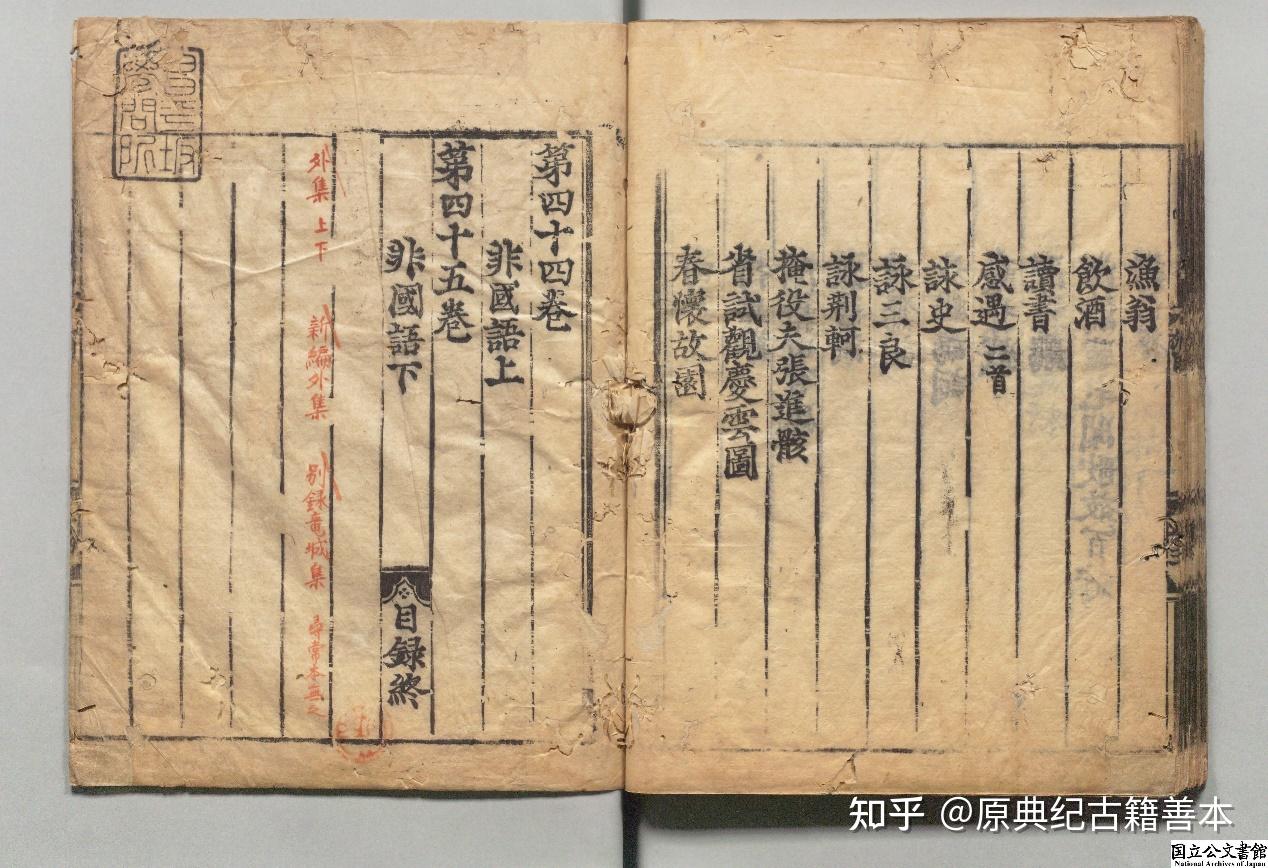 漁翁
飲酒
讀書
感遇二首
詠史
詠三良
詠荆軻
掩役夫張進骸
省試觀慶雲圖
春懷故園
第四十四巻
非國語上
第四十五巻
非國語下
目録終
外集上下 新編外集 別録竜城集 尋常本無之
知乎 @原典纪古籍善本
国立公文書館
National Archives of Japan